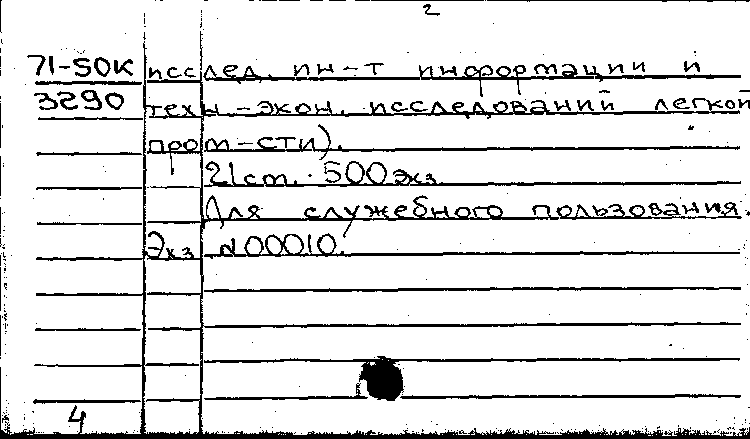 2
71-SOK исслед. ин-т информации и
3290 техн-экон. исследований легкой
пром-сти).
21 ст. 500 экз.
Для служебного пользования.
Экз N00010.
4